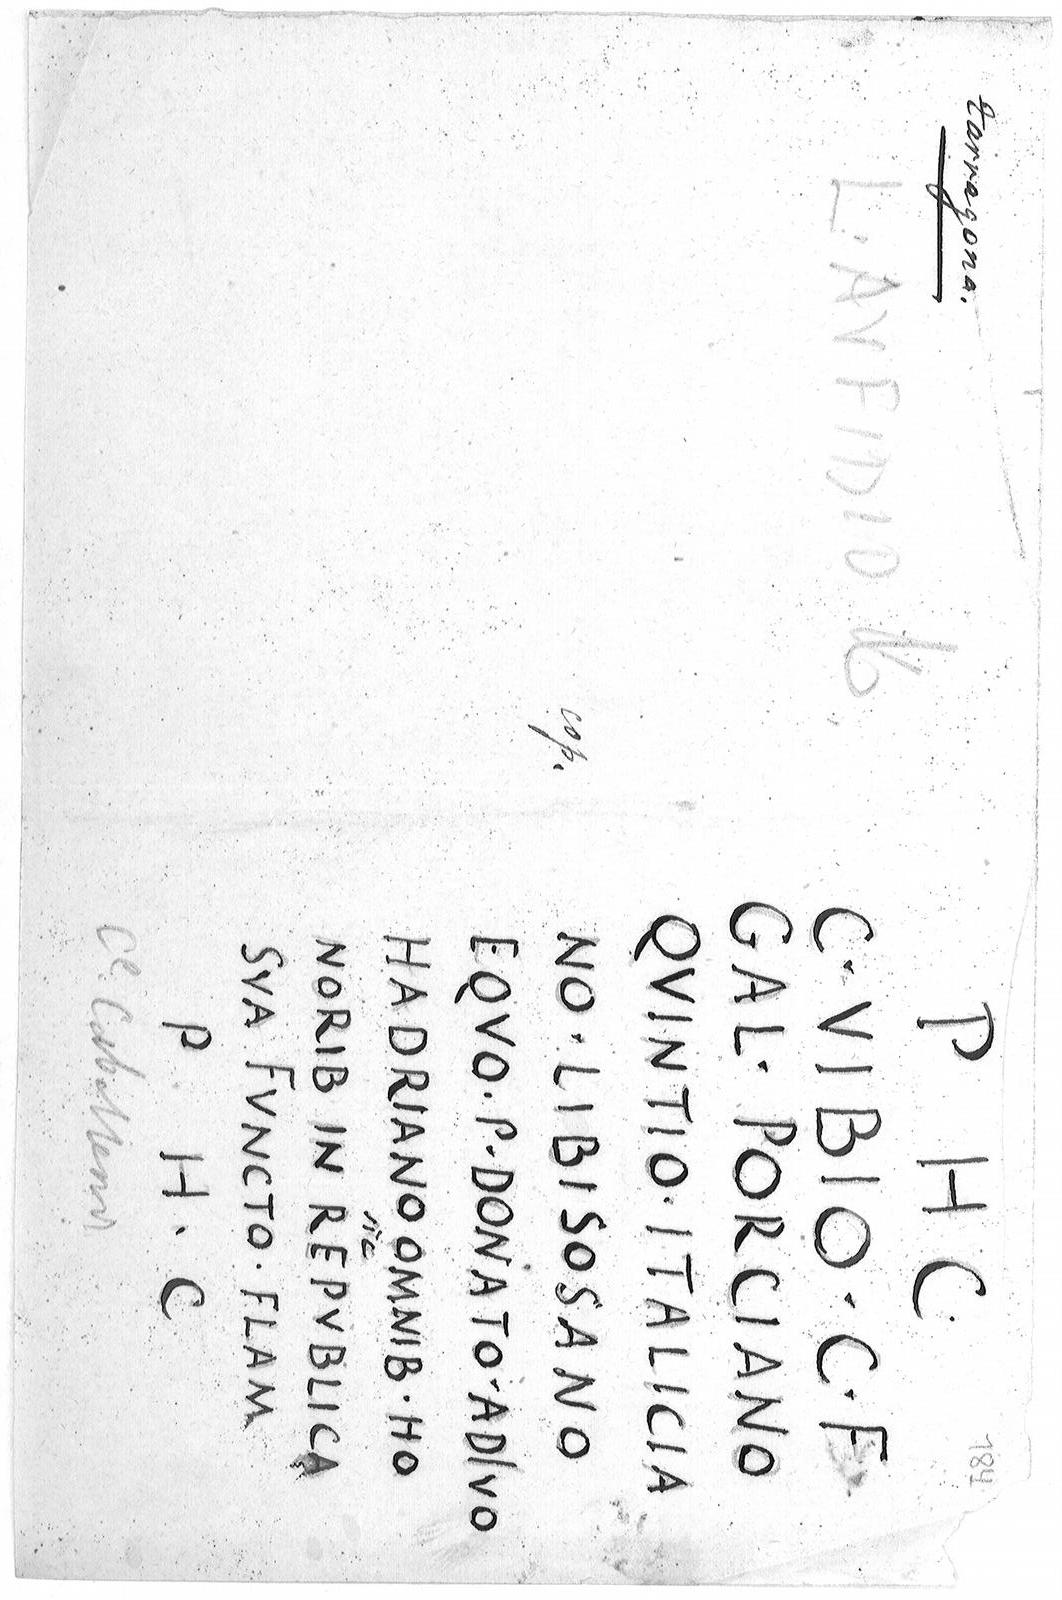 Tarragona.
L·AVFIDIO
cop.
P H C.
C·VIBIO·C·F
GAL·PORCIANO
QVINTIO·ITALICIA
NO·LIBISOSANO
EQVO·P·DONATO·ADIVO
HADRIANO OMNIB·HO
sic
NORIB IN REPVBLICA
SVA FVNCTO·FLAM
P H·C
184